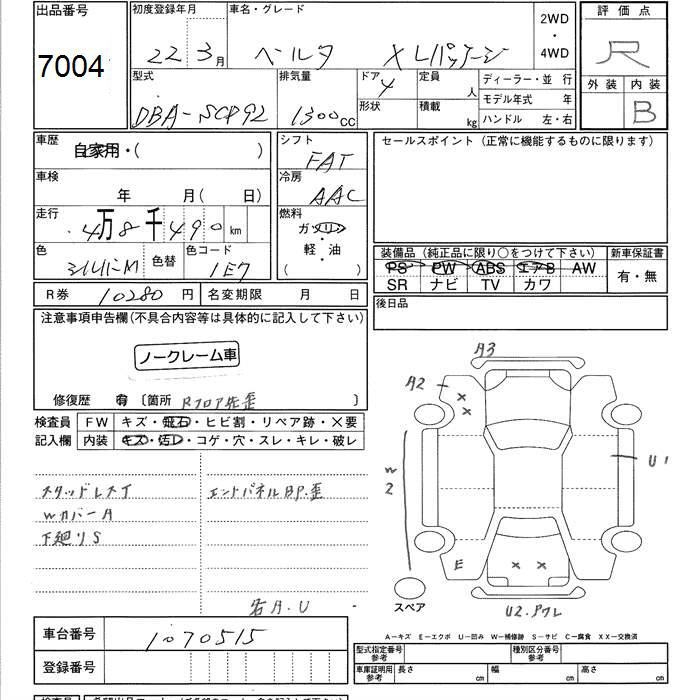 出品番号
7004
初度登録年月
22 3月
車名・グレード
ベルタ XLパッケージ
2WD
・
4WD
評価点
R
外装
内装
B
型式
DBA-SCP92
排気量
1300cc
ドア
4
形状
定員
人
積載
kg
ディーラー・並 行
モデル年式 年
ハンドル 左・右
車歴
自家用・( )
車検
年 月( 日)
走行
4万8千490km
色
シルバーM
色替
色コード
1E7
シフト
FAT
冷房
AAC
燃料
ガソリン
軽・油
( )
セールスポイント (正常に機能するものに限ります)
装備品 (純正品に限り○をつけて下さい)
PS PW ABS エアB AW
SR ナビ TV カワ
新車保証書
有・無
後日品
R券 10280 円
名変期限 月 日
注意事項申告欄(不具合内容等は具体的に記入して下さい)
ノークレーム車
修復歴 有 〔箇所 Rフロア先歪 〕
検査員
記入欄
FW キズ・飛石・ヒビ割・リペア跡・×要
内装 キズ・汚レ・コゲ・穴・スレ・キレ・破レ
スタッドレスT
WカバーA
下廻りS
エンドパネルBP.歪
右A.U
A3
A2
W2
U1
E
U2.
スペア
A-キズ E-エクボ U-凹み W-補修跡 S-サビ C-腐食 XX-交換済
車台番号
1070515
登録番号
型式指定番号
参考
種別区分番号
参考
車庫証明用
参考
長さ cm
幅 cm
高さ cm